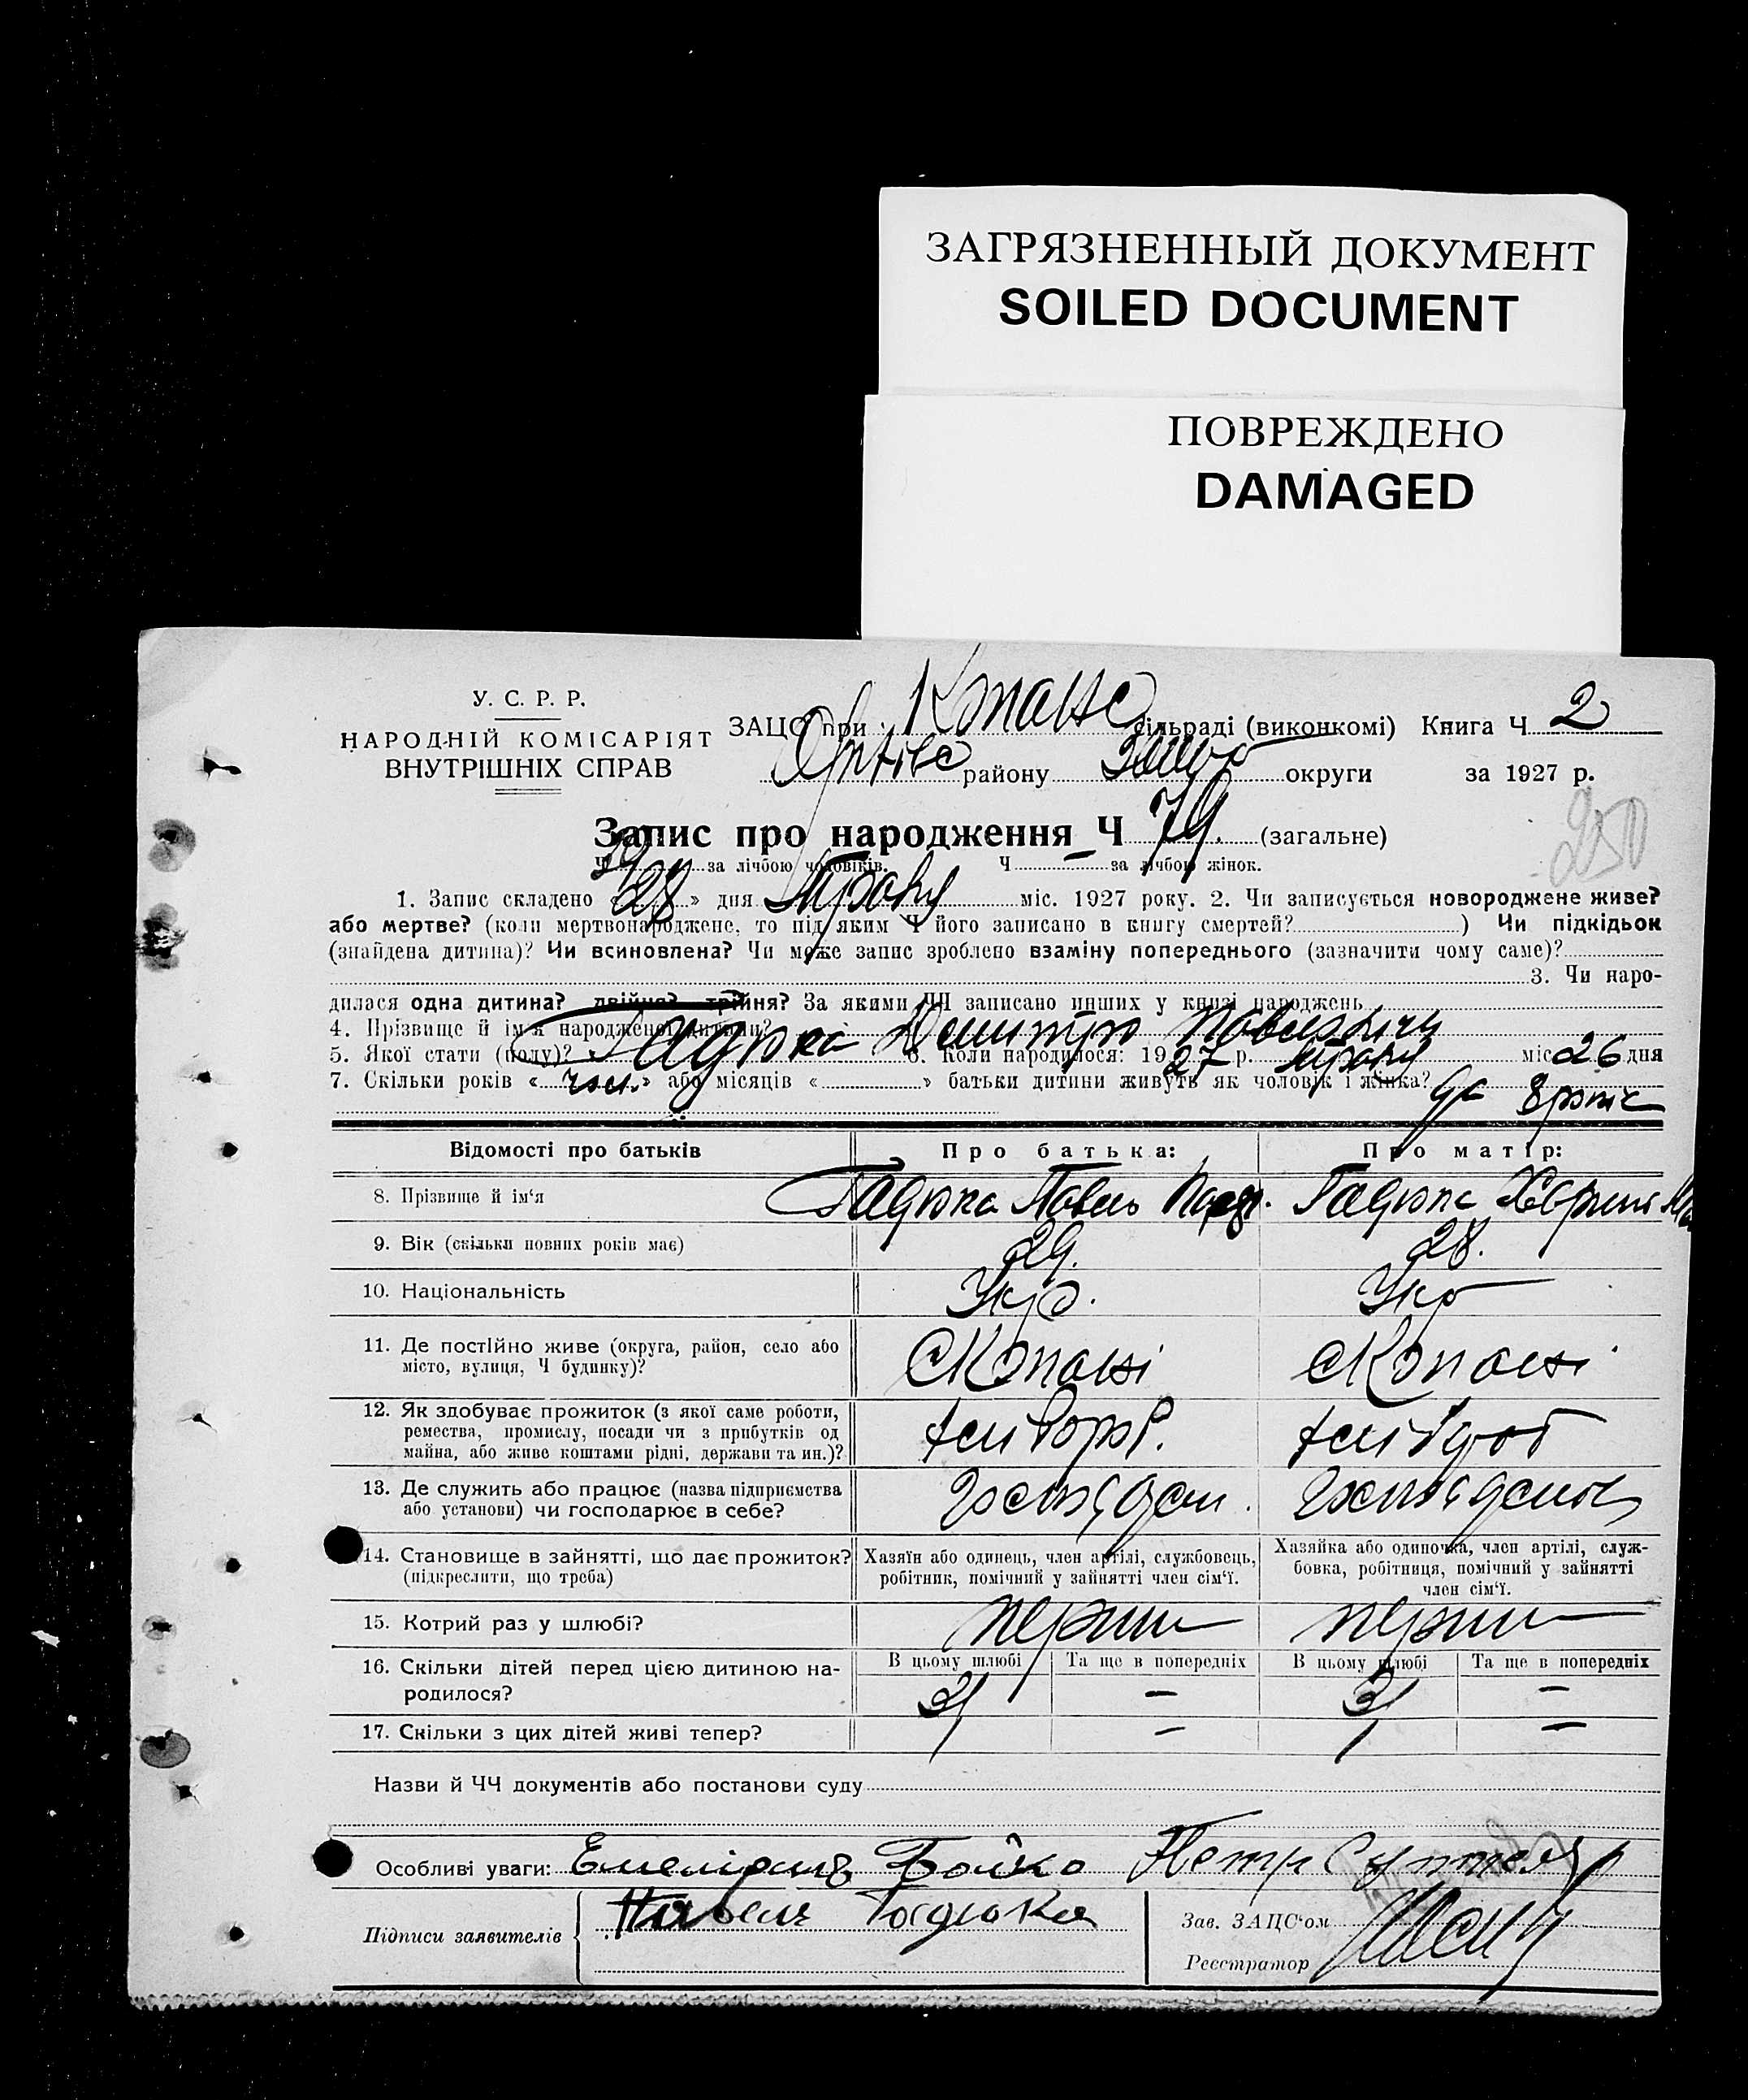 ЗАГРЯЗНЕННЫЙ ДОКУМЕНТ
SOILED DOCUMENT
ПОВРЕЖДЕНО
DAMAGED
У. С. Р. Р.
НАРОДНІЙ КОМІСАРІЯТ
ВНУТРІШНІХ СПРАВ
ЗАЦС при сільраді (виконкомі) Книга Ч 2
району округи за 1927 р.
Запис про народження Ч 79. (загальне)
250
Ч 39 за лічбою чоловіків. Ч — за лічбою жінок.
1. Запис складено «28» дня Травня міс. 1927 року. 2. Чи записується новороджене живе?
або мертве? (коли мертвонароджене, то під яким Ч його записано в книгу смертей? ) Чи підкідьок
(знайдена дитина)? Чи всиновлена? Чи може запис зроблено взаміну попереднього (зазначити чому саме)?
3. Чи наро-
дилася одна дитина? двійня? трійня? За якими ЧЧ записано инших у книзі народжень
4. Прізвище й ім'я народженої дитини? Гадюка Дмитро Павлович
5. Якої статі (полу)? чол. 6. Коли народилося: 1927 р. Травня міс. 26 дня
7. Скільки років « » або місяців « » батьки дитини живуть як чоловік і жінка?
Відомості про батьків Про батька: Про матір:
8. Прізвище й ім'я Гадюка Павло Гадюка
9. Вік (скільки повних років має) 29. 28.
10. Національність Укр. Укр
11. Де постійно живе (округа, район, село або
місто, вулиця, Ч будинку)?
12. Як здобуває прожиток (з якої саме роботи,
ремества, промислу, посади чи з прибутків од
майна, або живе коштами рідні, держави та ин.)?
13. Де служить або працює (назва підприємства
або установи) чи господарює в себе?
14. Становище в зайнятті, що дає прожиток? Хазяїн або одинець, член артілі, службовець, Хазяйка або одиночка, член артілі, служ-
(підкреслити, що треба) робітник, помічний у зайнятті член сім'ї. бовка, робітниця, помічний у зайнятті
член сім'ї.
15. Котрий раз у шлюбі? перший перший
16. Скільки дітей перед цією дитиною на- В цьому шлюбі Та ще в попередніх В цьому шлюбі Та ще в попередніх
родилося? — —
17. Скільки з цих дітей живі тепер? — —
Назви й ЧЧ документів або постанови суду
Особливі уваги: Бойко Петр
Підписи заявителів Павель Гадюка Зав. ЗАЦС'ом
Реєстратор